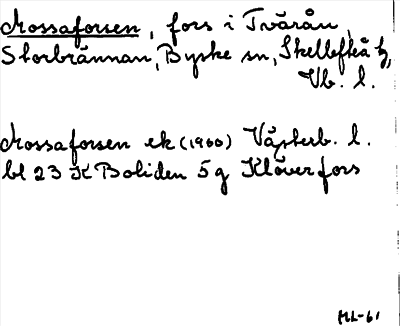 Mossaforsen, fors i Tvärån,
Storbrännan, Byske sn, Skellefteå hg,
Vb. l.
Mossaforsen ek (1960) Västerb. l.
bl 23 K Boliden 5g Klöverfors
ML-61